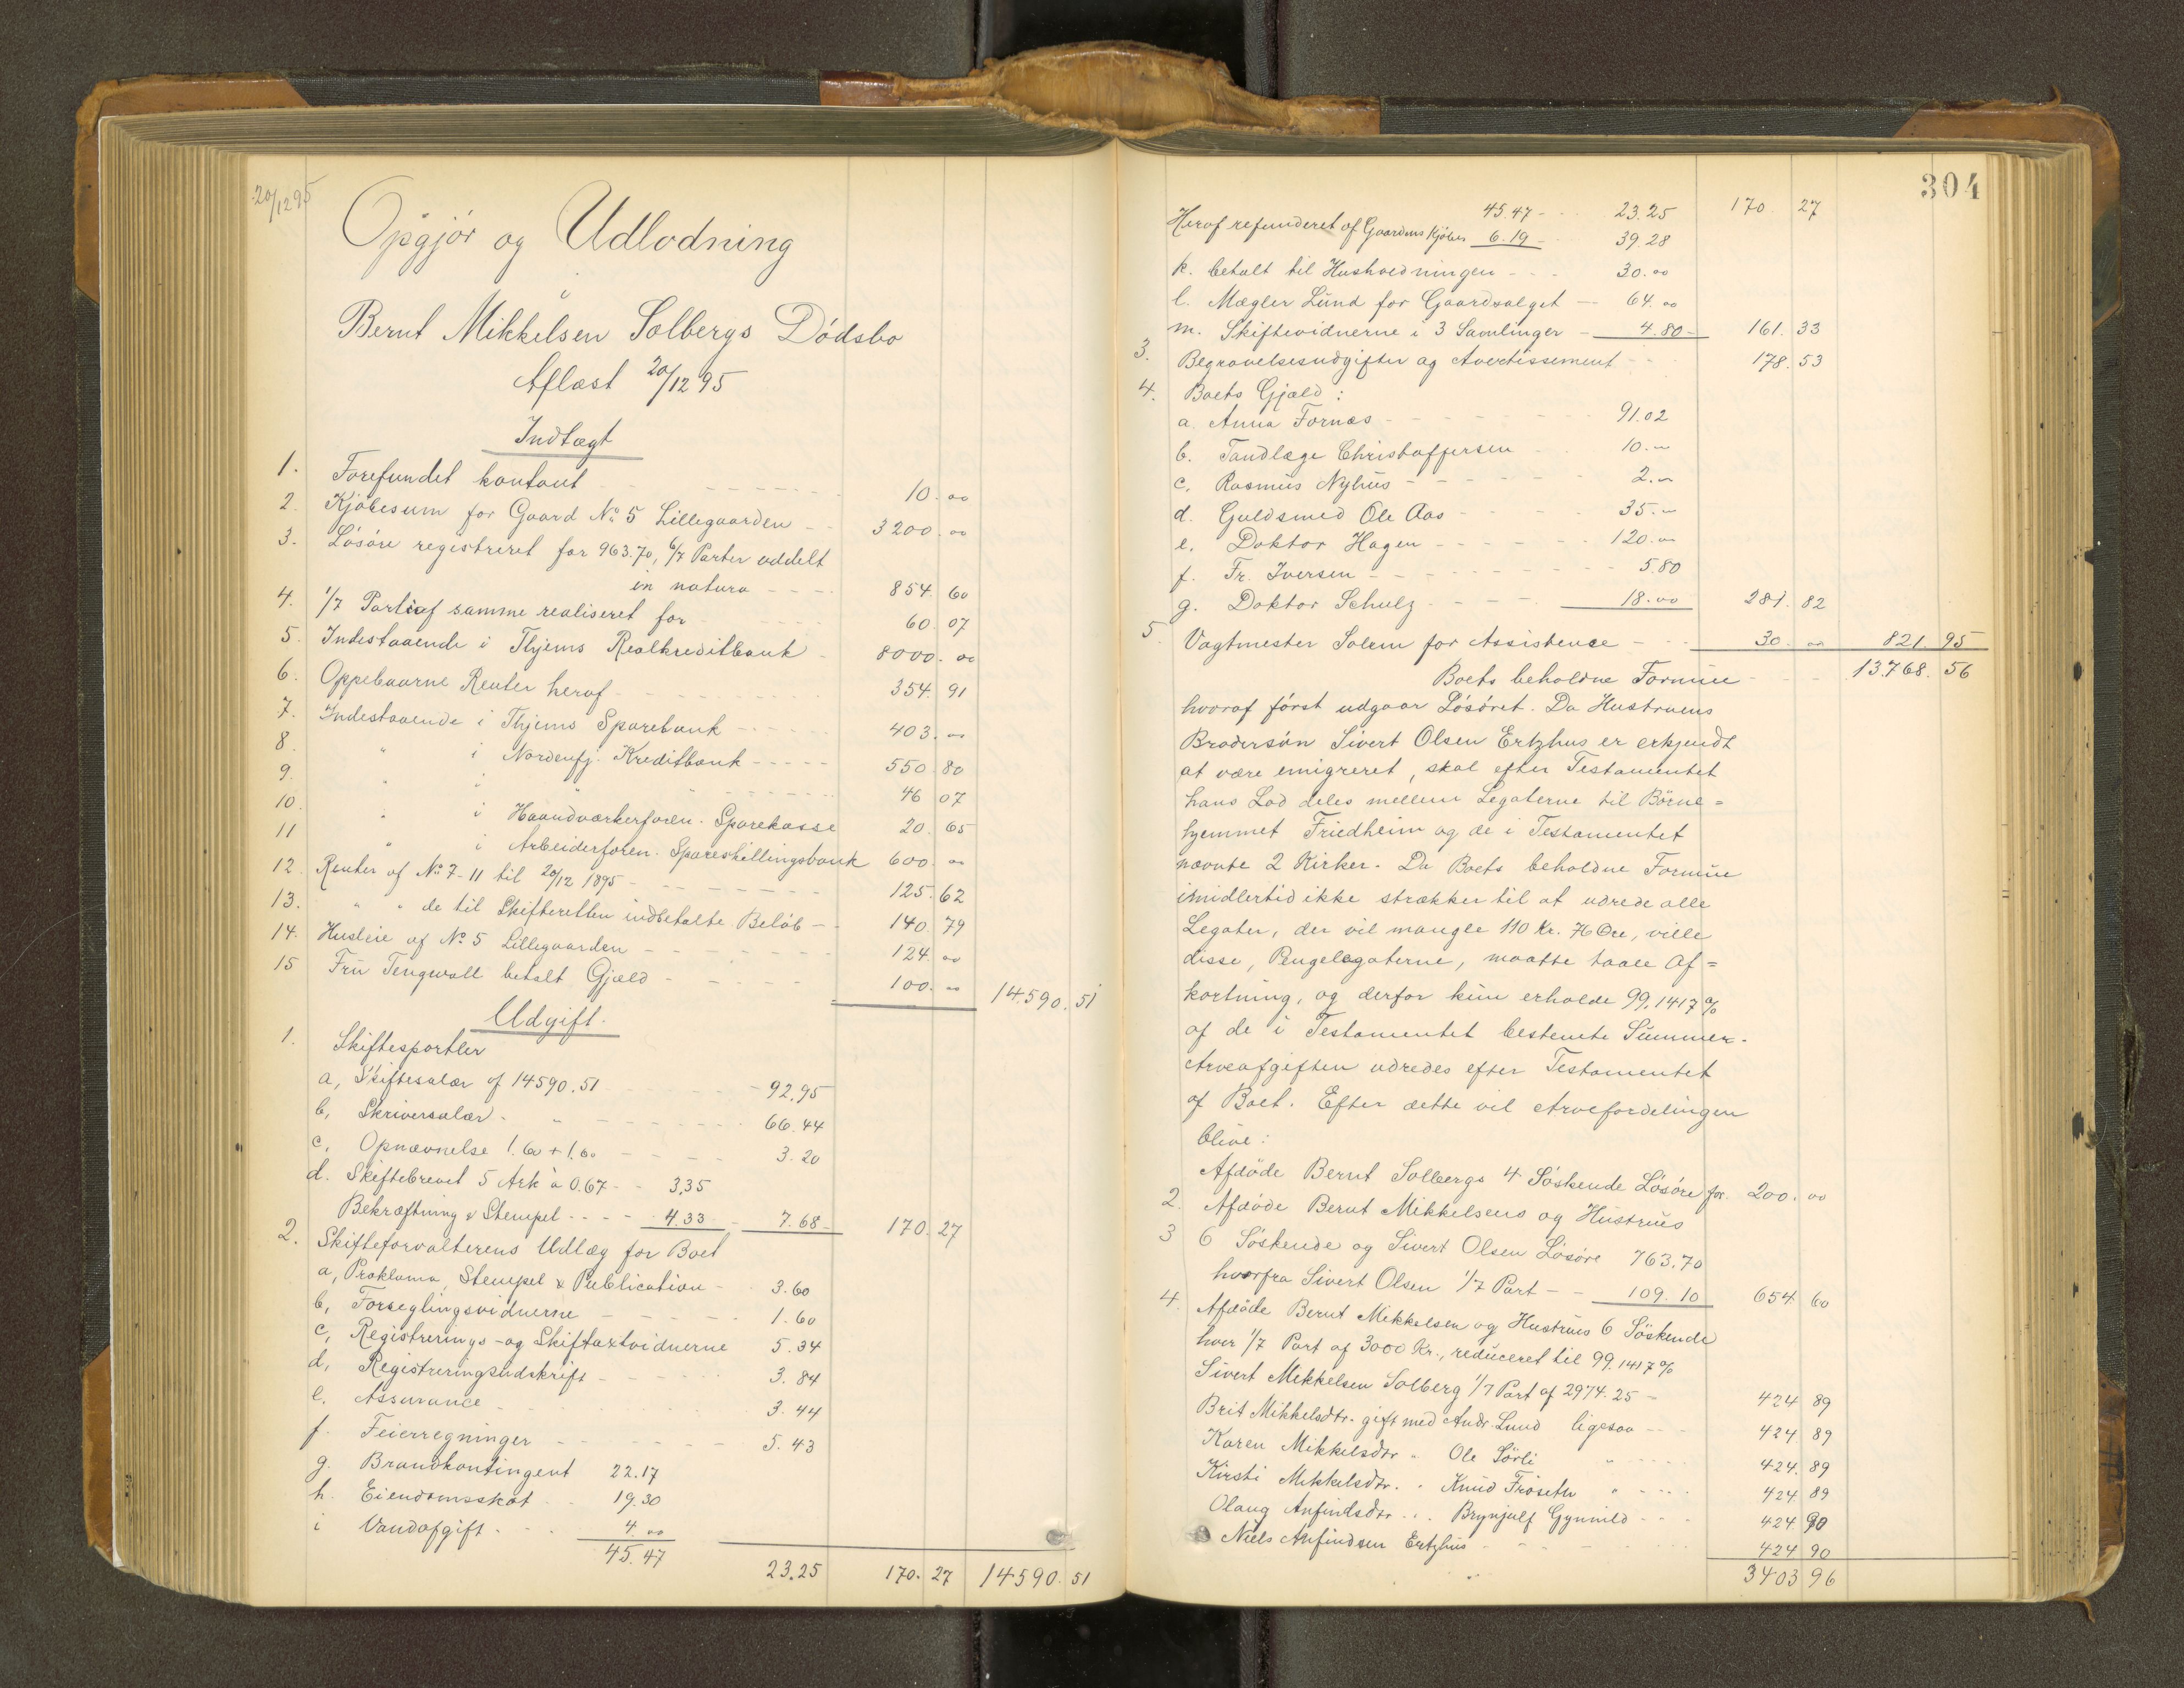 20/12 95
Opgjör og Udlodning
i
Bernt Mikkelsen Solbergs Dödsbo
Aflæst 20/12 95
Indtægt
1. Forefundet kontant - - - 10. 00
2. Kjöbesum for Gaard No 5 Lillegaarden - - 3200. 00
3. Lösöre registreret for 963.70, 6/7 Parter uddelt
in natura - - - 854. 60
4. 1/7 Part af samme realiseret for - - - 60. 07
5. Indestaaende i Thjems Realkreditbank - 8000. 00
6. Oppebaarne Renter heraf - - - 354. 91
7. Indestaaende i Thjems Sparebank - - - 403. 00
8. " i Nordenfj. Kreditbank - - - 550 80
9. " i " " - - - 46 07
10. " i Haandværkerforen. Sparekasse 20. 65
11 " i Arbeiderforen. Spareskillingsbank 600. 00
12. Renter af No 7-11 til 20/12 1895 - - - 125. 62
13. " " de til Skifteretten indbetalte Belöb - - 140. 79
14. Husleie af No 5 Lillegaarden - - - 124. 00
15 Fru Tengwall betalt Gjæld - - - 100. 00 14590. 51
Udgift.
1. Skiftesportler
a, Skiftesalær af 14590.51 - 92.95
b, Skriversalær - " - - - 66.44
c, Opnævnelse 1.60 + 1.60 - - - 3.20
d. Skiftebrevet 5 Ark à 0.67 - - 3.35
Bekræftning & Stempel - - - 4.33 - 7.68 - 170. 27
2. Skifteforvalterens Udlæg for Boet
a, Proklama, Stempel & Publication - 3.60
b, Forseglingsvidnerne - - - 1.60
c, Registrerings- og Skiftaxtvidnerne 5.34
d, Registreringsudskrift - - - 3.84
e. Assurance - - - 3.44
f. Feierregninger - - - 5.43
g. Brandkontingent 22.17
h. Eiendomsskat - - 19.30
i Vandafgift - - - 4.00
45.47
23.25 170. 27 14590. 51
304
45.47 - - - 23.25 170. 27
Heraf refunderet af Gaardens Kjöber 6.19 - 39.28
k. betalt til Husholdningen - - - 30.00
l. Mægler Lund for Gaardsalget - 64.00
m. Skiftevidnerne i 3 Samlinger - 4.80 - 161. 33
3. Begravelsesudgifter og Avertissement - - 178. 53
4. Boets Gjæld:
a. Anna Fornæs - - - 91.02
b. Tandlæge Christoffersen - - 10.00
c, Rasmus Nyhus - - - 2.00
d. Guldsmed Ole Aas - - - 35.00
e. Doktor Hagen - - - 120.00
f. Fr. Iversen - - - 5.80
g. Doktor Schulz - - - 18.00 281. 82
5. Vagtmester Solem for Assistence - - 30. 00 821. 95
Boets beholdne Formue - - 13768. 56
hvoraf först udgaar Lösöret. Da Hustruens
Brodersön Sivert Olsen Ertzhus er erkjendt
at være emigreret, skal efter Testamentet
hans Lod deles mellem Legaterne til Börne=
hjemmet Friedheim og de i Testamentet
nævnte 2 Kirker. Da Boets beholdne Formue
imidlertid ikke strækker til at udrede alle
Legater, der vil mangle 110 Kr. 76 Öre, ville
disse, Pengelegaterne, maatte taale Af=
kortning, og derfor kun erholde 99,1417 %
af de i Testamentet bestemte Summer.
Arveafgiften udredes efter Testamentet
af Boet. Efter dette vil Arvefordelingen
blive:
Afdöde Bernt Solbergs 4 Söskende Lösöre for 200. 00
2. Afdöde Bernt Mikkelsens og Hustrues
3 6 Söskende og Sivert Olsen Lösöre 763.70
hvorfra Sivert Olsen 1/7 Part - - 109.10 654 60
4. Afdöde Bernt Mikkelsen og Hustrues 6 Söskende
hver 1/7 Part af 3000 Kr., reduceret til 99.1417 %
Sivert Mikkelsen Solberg 1/7 Part af 2974.25 - 424 89
Brit Mikkelsdtr. gift med Andr. Lund ligesaa - - 424. 89
Karen Mikkelsdtr " Ole Sörli " - - - 424. 89
Kirsti Mikkelsdtr. " Knud Fröseth " - - - 424 89
Olaug Anfindsdtr. " Brynjulf Gynnild - - - 424. 90
Niels Anfindsen Ertzhus - - - 424 90
3403 96